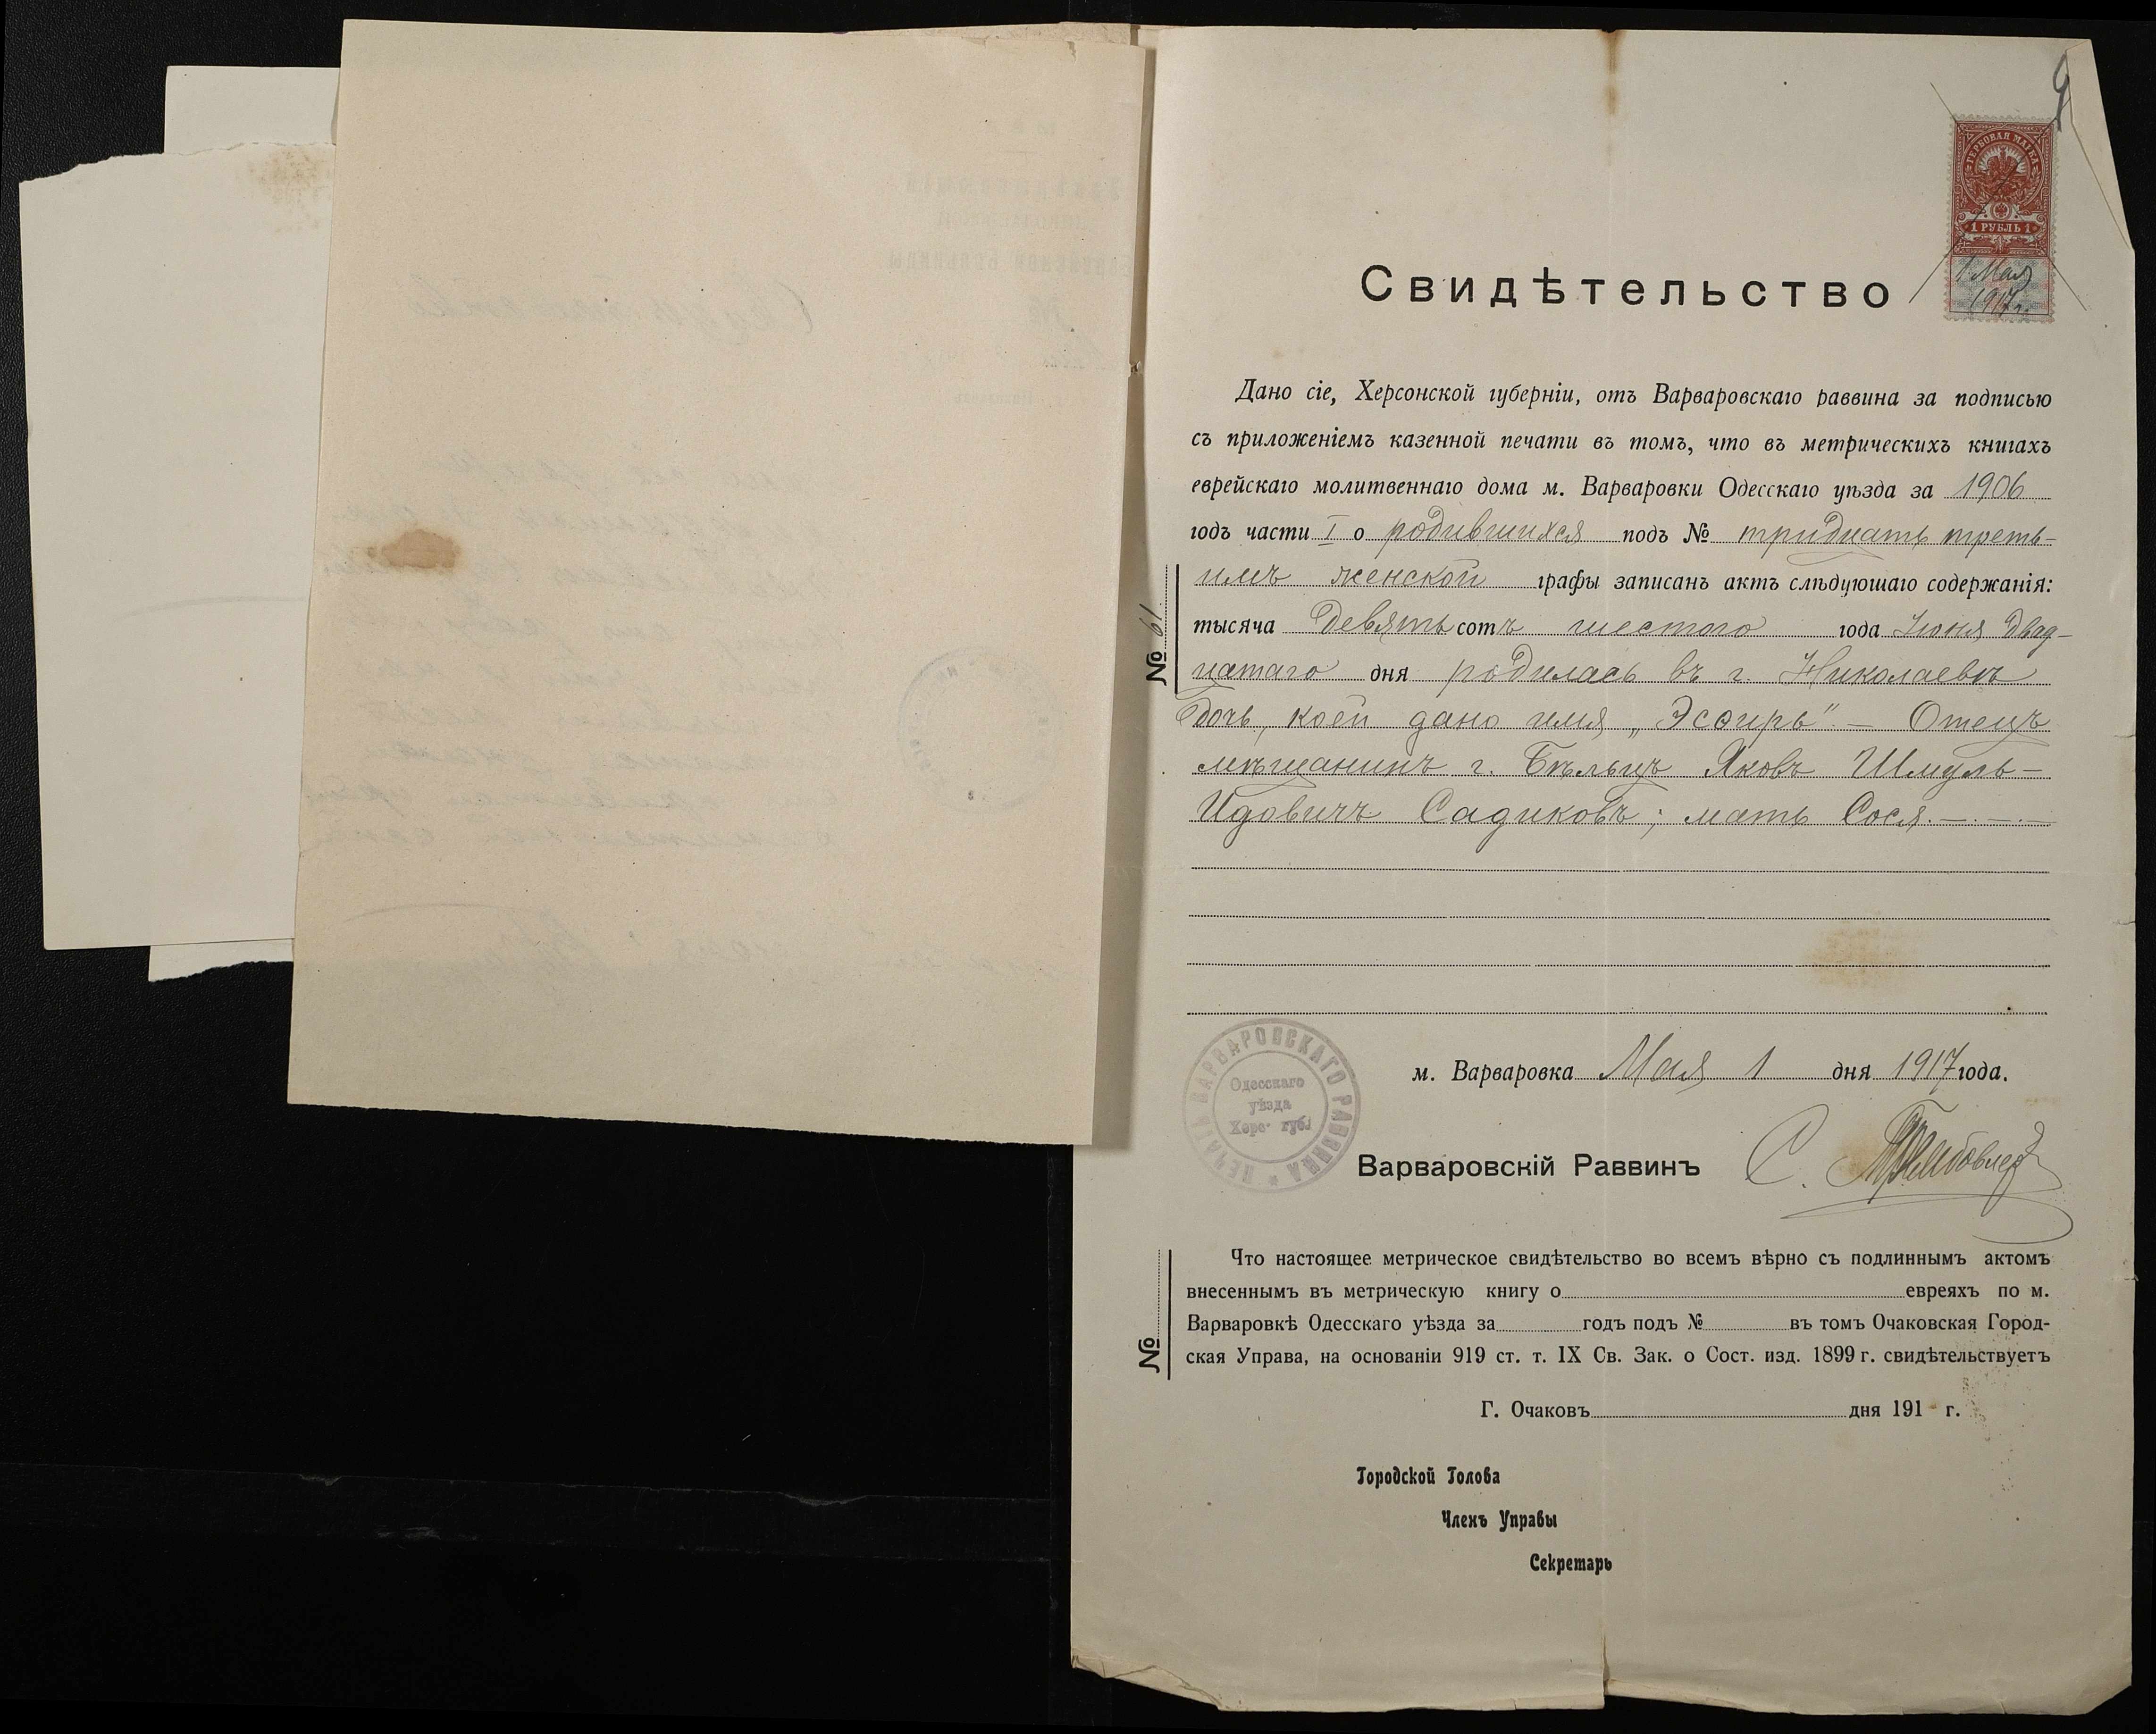 9
ГЕРБОВАЯ МАРКА
1 РУБЛЬ 1
1 Мая
1917 г.
Свидѣтельство
Дано сіе, Херсонской губерніи, отъ Варваровскаго раввина за подписью
съ приложеніемъ казенной печати въ томъ, что въ метрическихъ книгахъ
еврейскаго молитвеннаго дома м. Варваровки Одесскаго уѣзда за 1906
годъ части I о родившихся подъ № тридцать треть-
имъ женской графы записанъ актъ слѣдующаго содержанія:
№ 61
тысяча девятьсотъ шестого года Іюня двад-
цатаго дня родилась въ г. Николаевѣ
дочь, коей дано имя „Эсѳирь“ — Отецъ
мѣщанинъ г. Бѣльцъ Яковъ Шмуль-
Идовичъ Садиковъ; мать Сося. — . — . —
м. Варваровка Мая 1 дня 1917 года.
ПЕЧАТЬ ВАРВАРОВСКАГО РАВВИНА *
Одесскаго
уѣзда
Херс. губ.
Варваровскій Раввинъ С.
Что настоящее метрическое свидѣтельство во всемъ вѣрно съ подлиннымъ актомъ
внесеннымъ въ метрическую книгу о евреяхъ по м.
Варваровкѣ Одесскаго уѣзда за годъ подъ № въ томъ Очаковская Город-
ская Управа, на основаніи 919 ст. т. IX Св. Зак. о Сост. изд. 1899 г. свидѣтельствуетъ
№
Г. Очаковъ дня 191 г.
Городской Голова
Членъ Управы
Секретарь